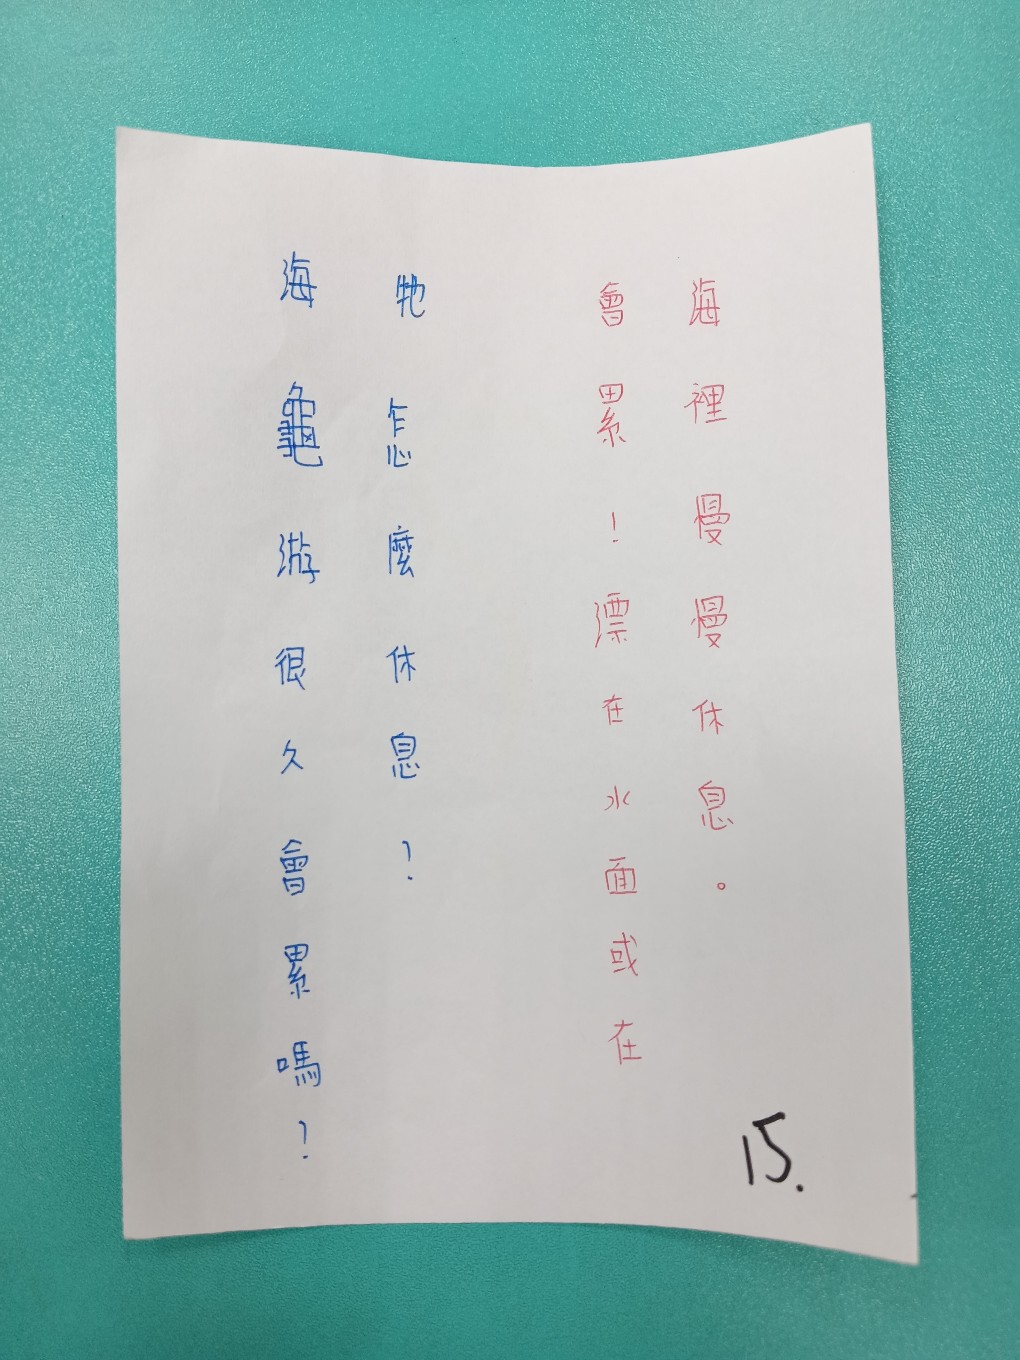 海龜游很久會累嗎？
牠怎麼休息？
會累！漂在水面或在
海裡慢慢休息。
15.